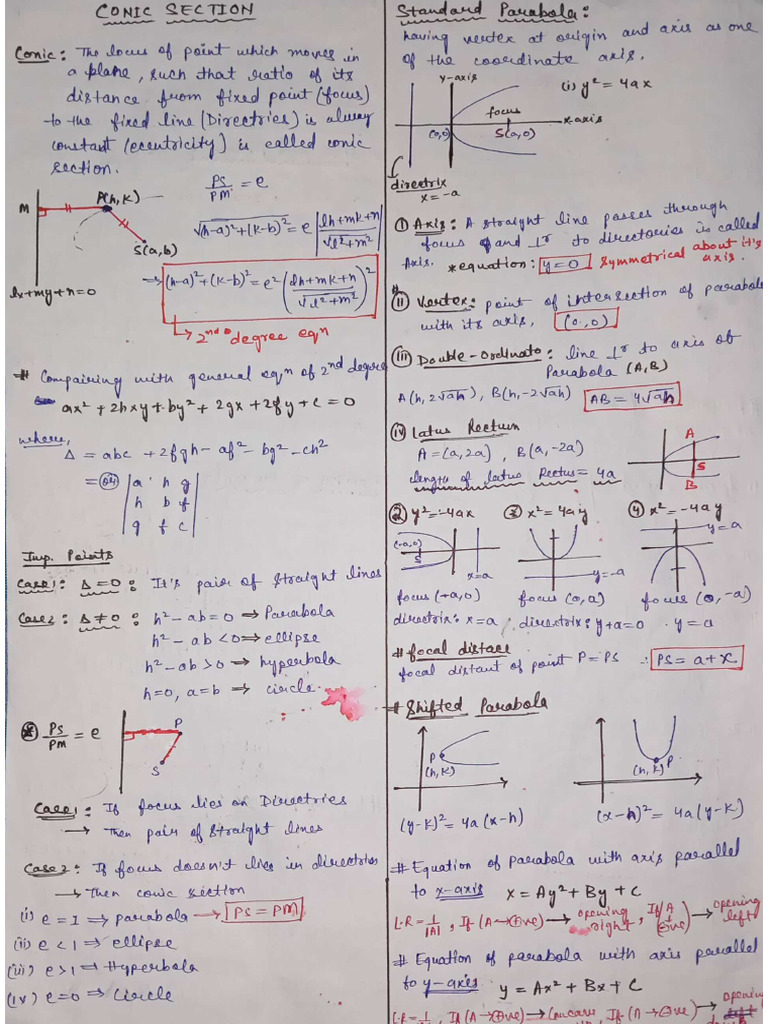 CONIC SECTION
Conic: The locus of point which moves in
a plane, such that ratio of its
distance from fixed point (focus)
to the fixed line (Directries) is alway
constant (eccentricity) is called conic
section.
PS/PM = e
M
P(h,K)
S(a,b)
lx+my+n=0
√(h-a)²+(k-b)² = e |lh+mk+n / √l²+m²|
⇒ (h-a)²+(k-b)² = e² (lh+mk+n / √l²+m²)²
→ 2nd degree eqn
# Compairing with general eqn of 2nd degree
ax² + 2hxy + by² + 2gx + 2fy + c = 0
where,
Δ = abc + 2fgh - af² - bg² - ch²
= OR |a h g|
|h b f|
|g f c|
Imp. Points
Case1: Δ=0: It's pair of Straight lines
Case2: Δ≠0: h²-ab=0 ⇒ Parabola
h²-ab<0 ⇒ ellipse
h²-ab>0 ⇒ hyperbola
h=0, a=b ⇒ circle
PS/PM = e
P
S
Case1: If focus lies on Directries
→ Then pair of Straight lines
Case2: If focus doesn't lies in directries
→ Then conic section
(i) e = 1 ⇒ parabola → PS = PM
(ii) e < 1 ⇒ ellipse
(iii) e>1 ⇒ Hyperbola
(iv) e=0 ⇒ Circle
Standard Parabola:
having vertex at origin and axis as one
of the coordinate axis.
y-axis
(i) y² = 4ax
focus
(0,0)
S(a,0)
x-axis
directrix
x=-a
(i) Axis: A straight line passes through
focus and ⊥r to directories is called
Axis. *equation: y=0 Symmetrical about it's
axis.
(ii) Vertex: point of intersection of parabola
with its axis, (0,0)
(iii) Double-Ordinate: line ⊥r to axis of
Parabola (A,B)
A(h, 2√ah), B(h,-2√ah) AB = 4√ah
(iv) Latus Rectum
A=(a,2a), B(a,-2a)
length of latus Rectus = 4a
A
S
B
(2) y²=-4ax (3) x²=4ay (4) x²=-4ay
(-a,0)
S
x=a
y=-a
y=a
focus (-a,0) focus (0,a) focus (0,-a)
directrix: x=a directrix: y+a=0 y=a
# focal distace
focal distant of point P = PS ∴ PS = a+x
# Shifted Parabola
P
(h,K)
(h,K) P
(y-K)² = 4a(x-h) (x-h)² = 4a(y-K)
# Equation of parabola with axis parallel
to x-axis x = Ay² + By + C
L.R = 1/|A|, If (A→+ve) → opening right, If (A→-ve) → opening left
# Equation of parabola with axis parallel
to y-axis y = Ax² + Bx + C
L.R = 1/|A|, If (A→+)ve) → Concave, If (A→-)ve) → opening